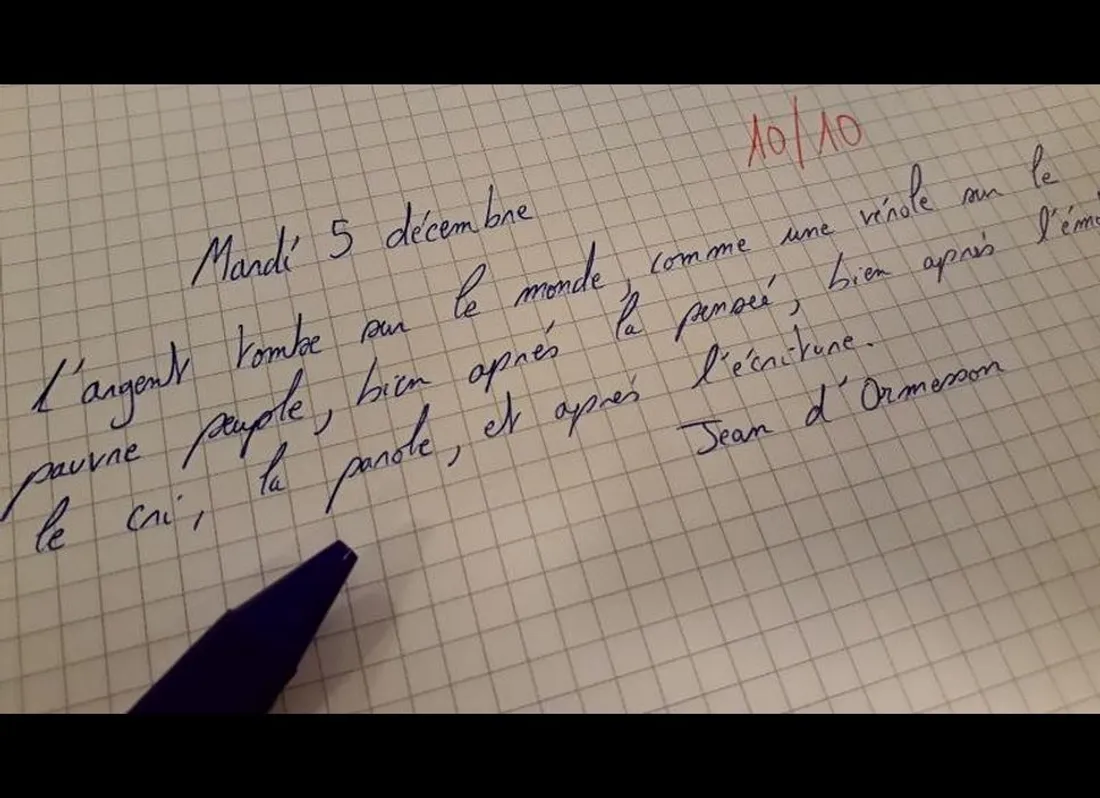 10/10
Mardi 5 décembre
L'argent tombe sur le monde, comme une vérole sur le
pauvre peuple, bien après la penseé, bien après l'émo
le cri, la parole, et après l'écriture.
Jean d'Ormesson